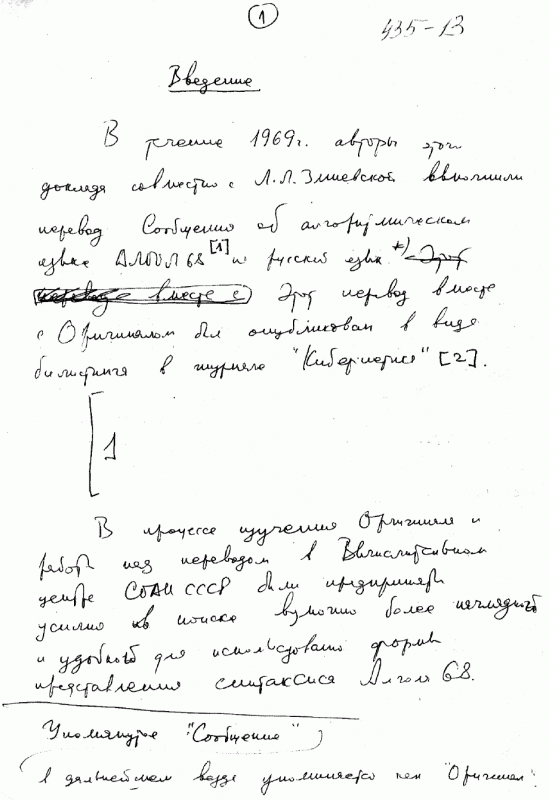 1
435-13
Введение
В течение 1969г. авторы этого
доклада совместно с Л.Л.Змиевской выполнили
перевод Сообщения об алгоритмическом
языке АЛГОЛ 68 [1] на русский язык *) Этот
перевод вместе с Этот перевод вместе
с Оригиналом был опубликован в виде
билистинга в журнале "Кибернетика" [2].
1
В процессе изучения Оригинала и
работы над переводом в Вычислительном
центре СОАН СССР были предприняты
усилия в поиске более наглядной
и удобной для использования формы
представления синтаксиса Алгола 68.
Упомянутое "Сообщение"
в дальнейшем везде упоминается как "Оригинал".